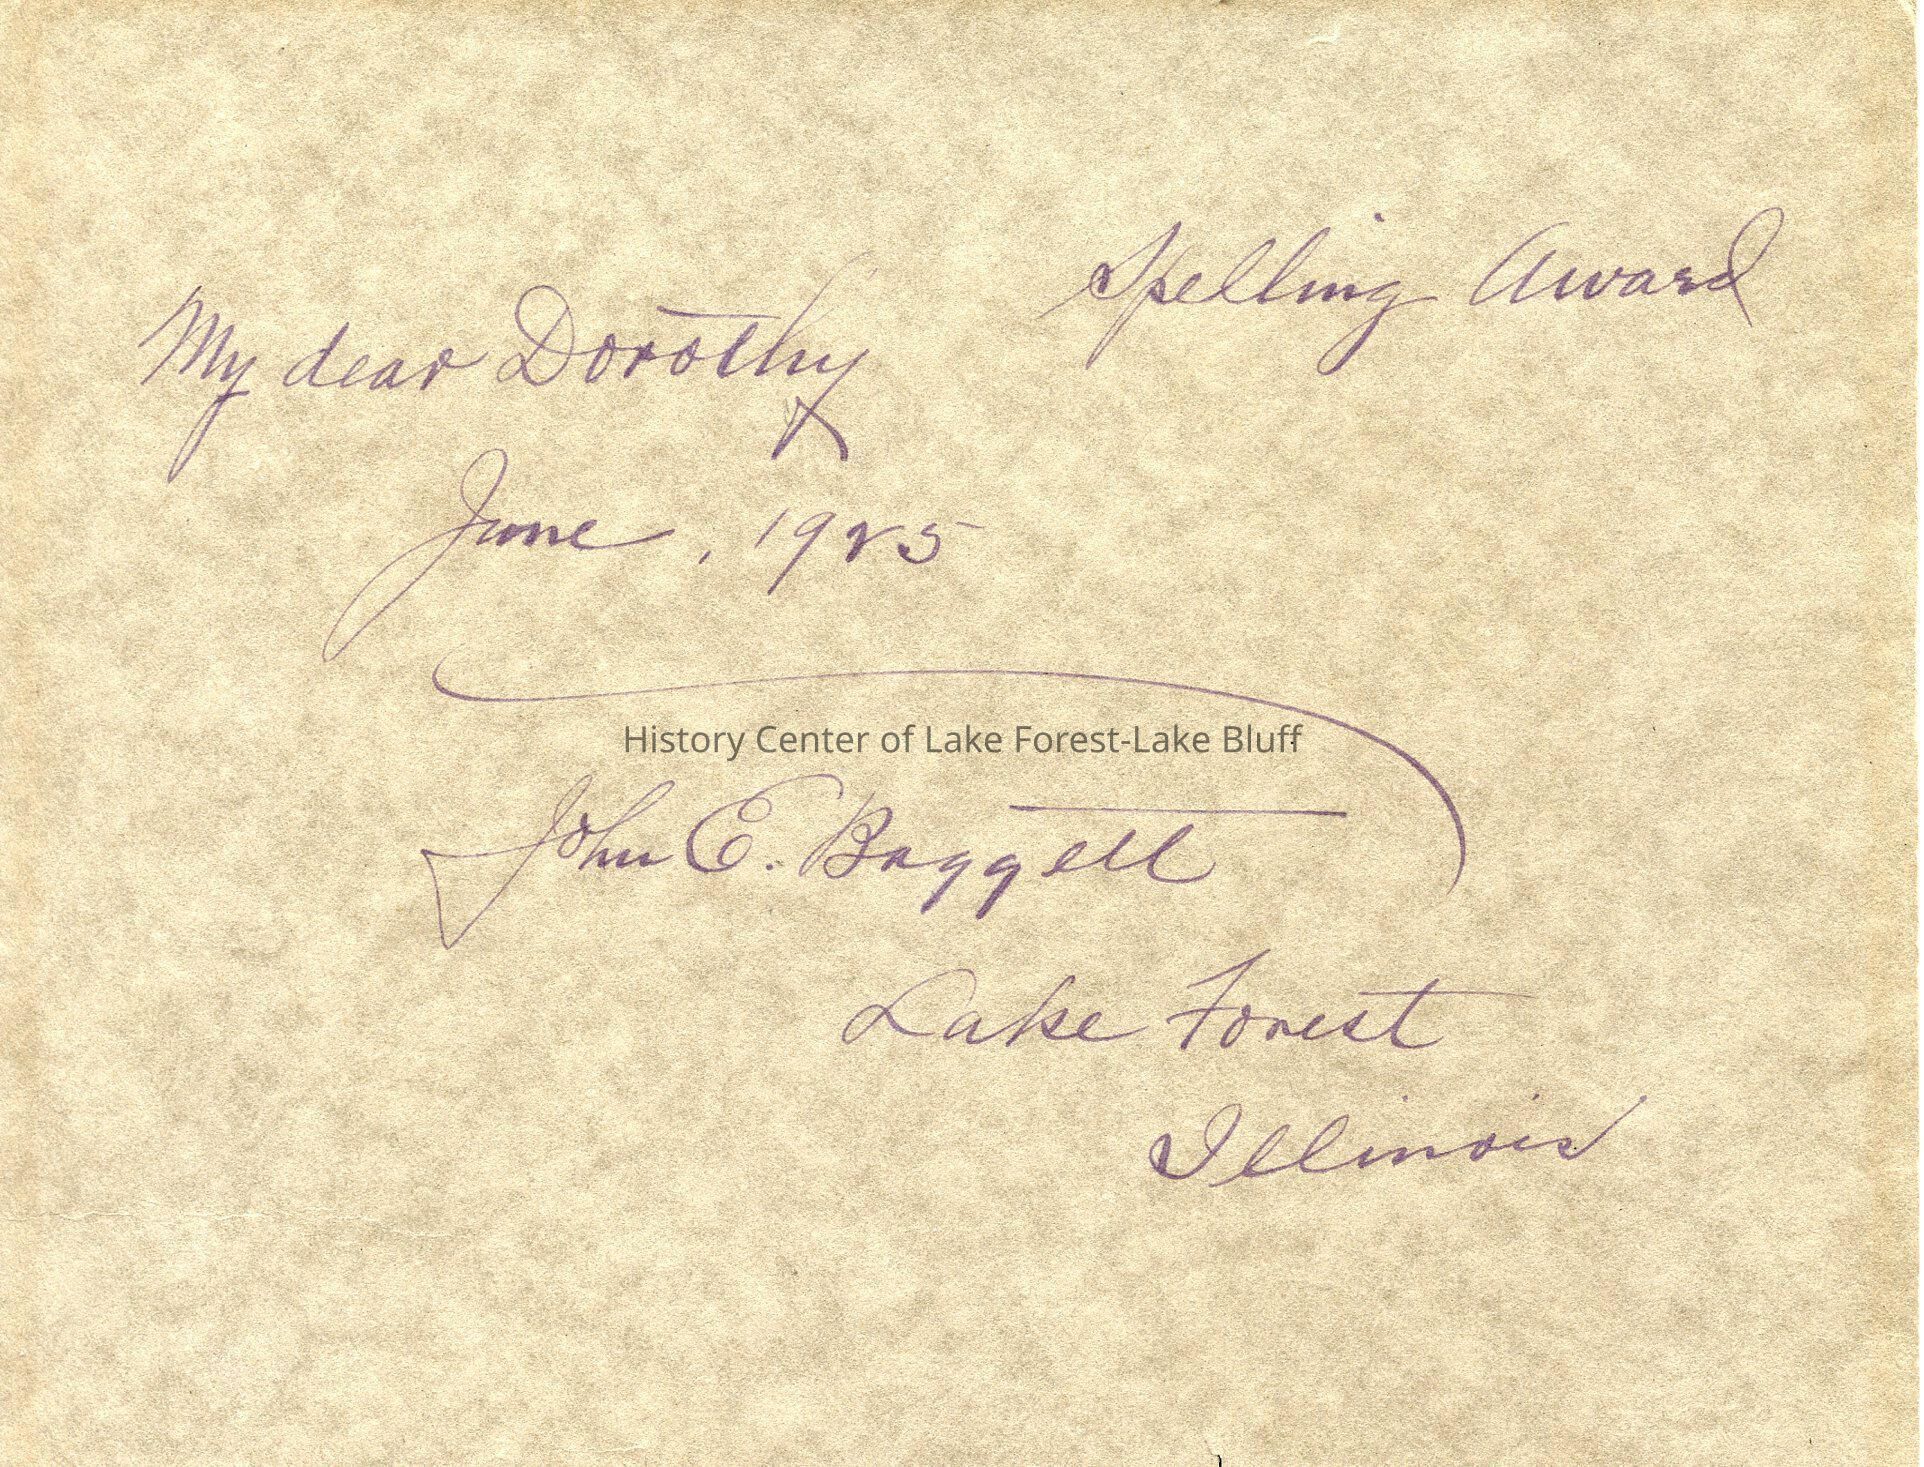 Spelling Award
My dear Dorothy
June, 1925
History Center of Lake Forest-Lake Bluff
John E. Baggett
Lake Forest
Illinois